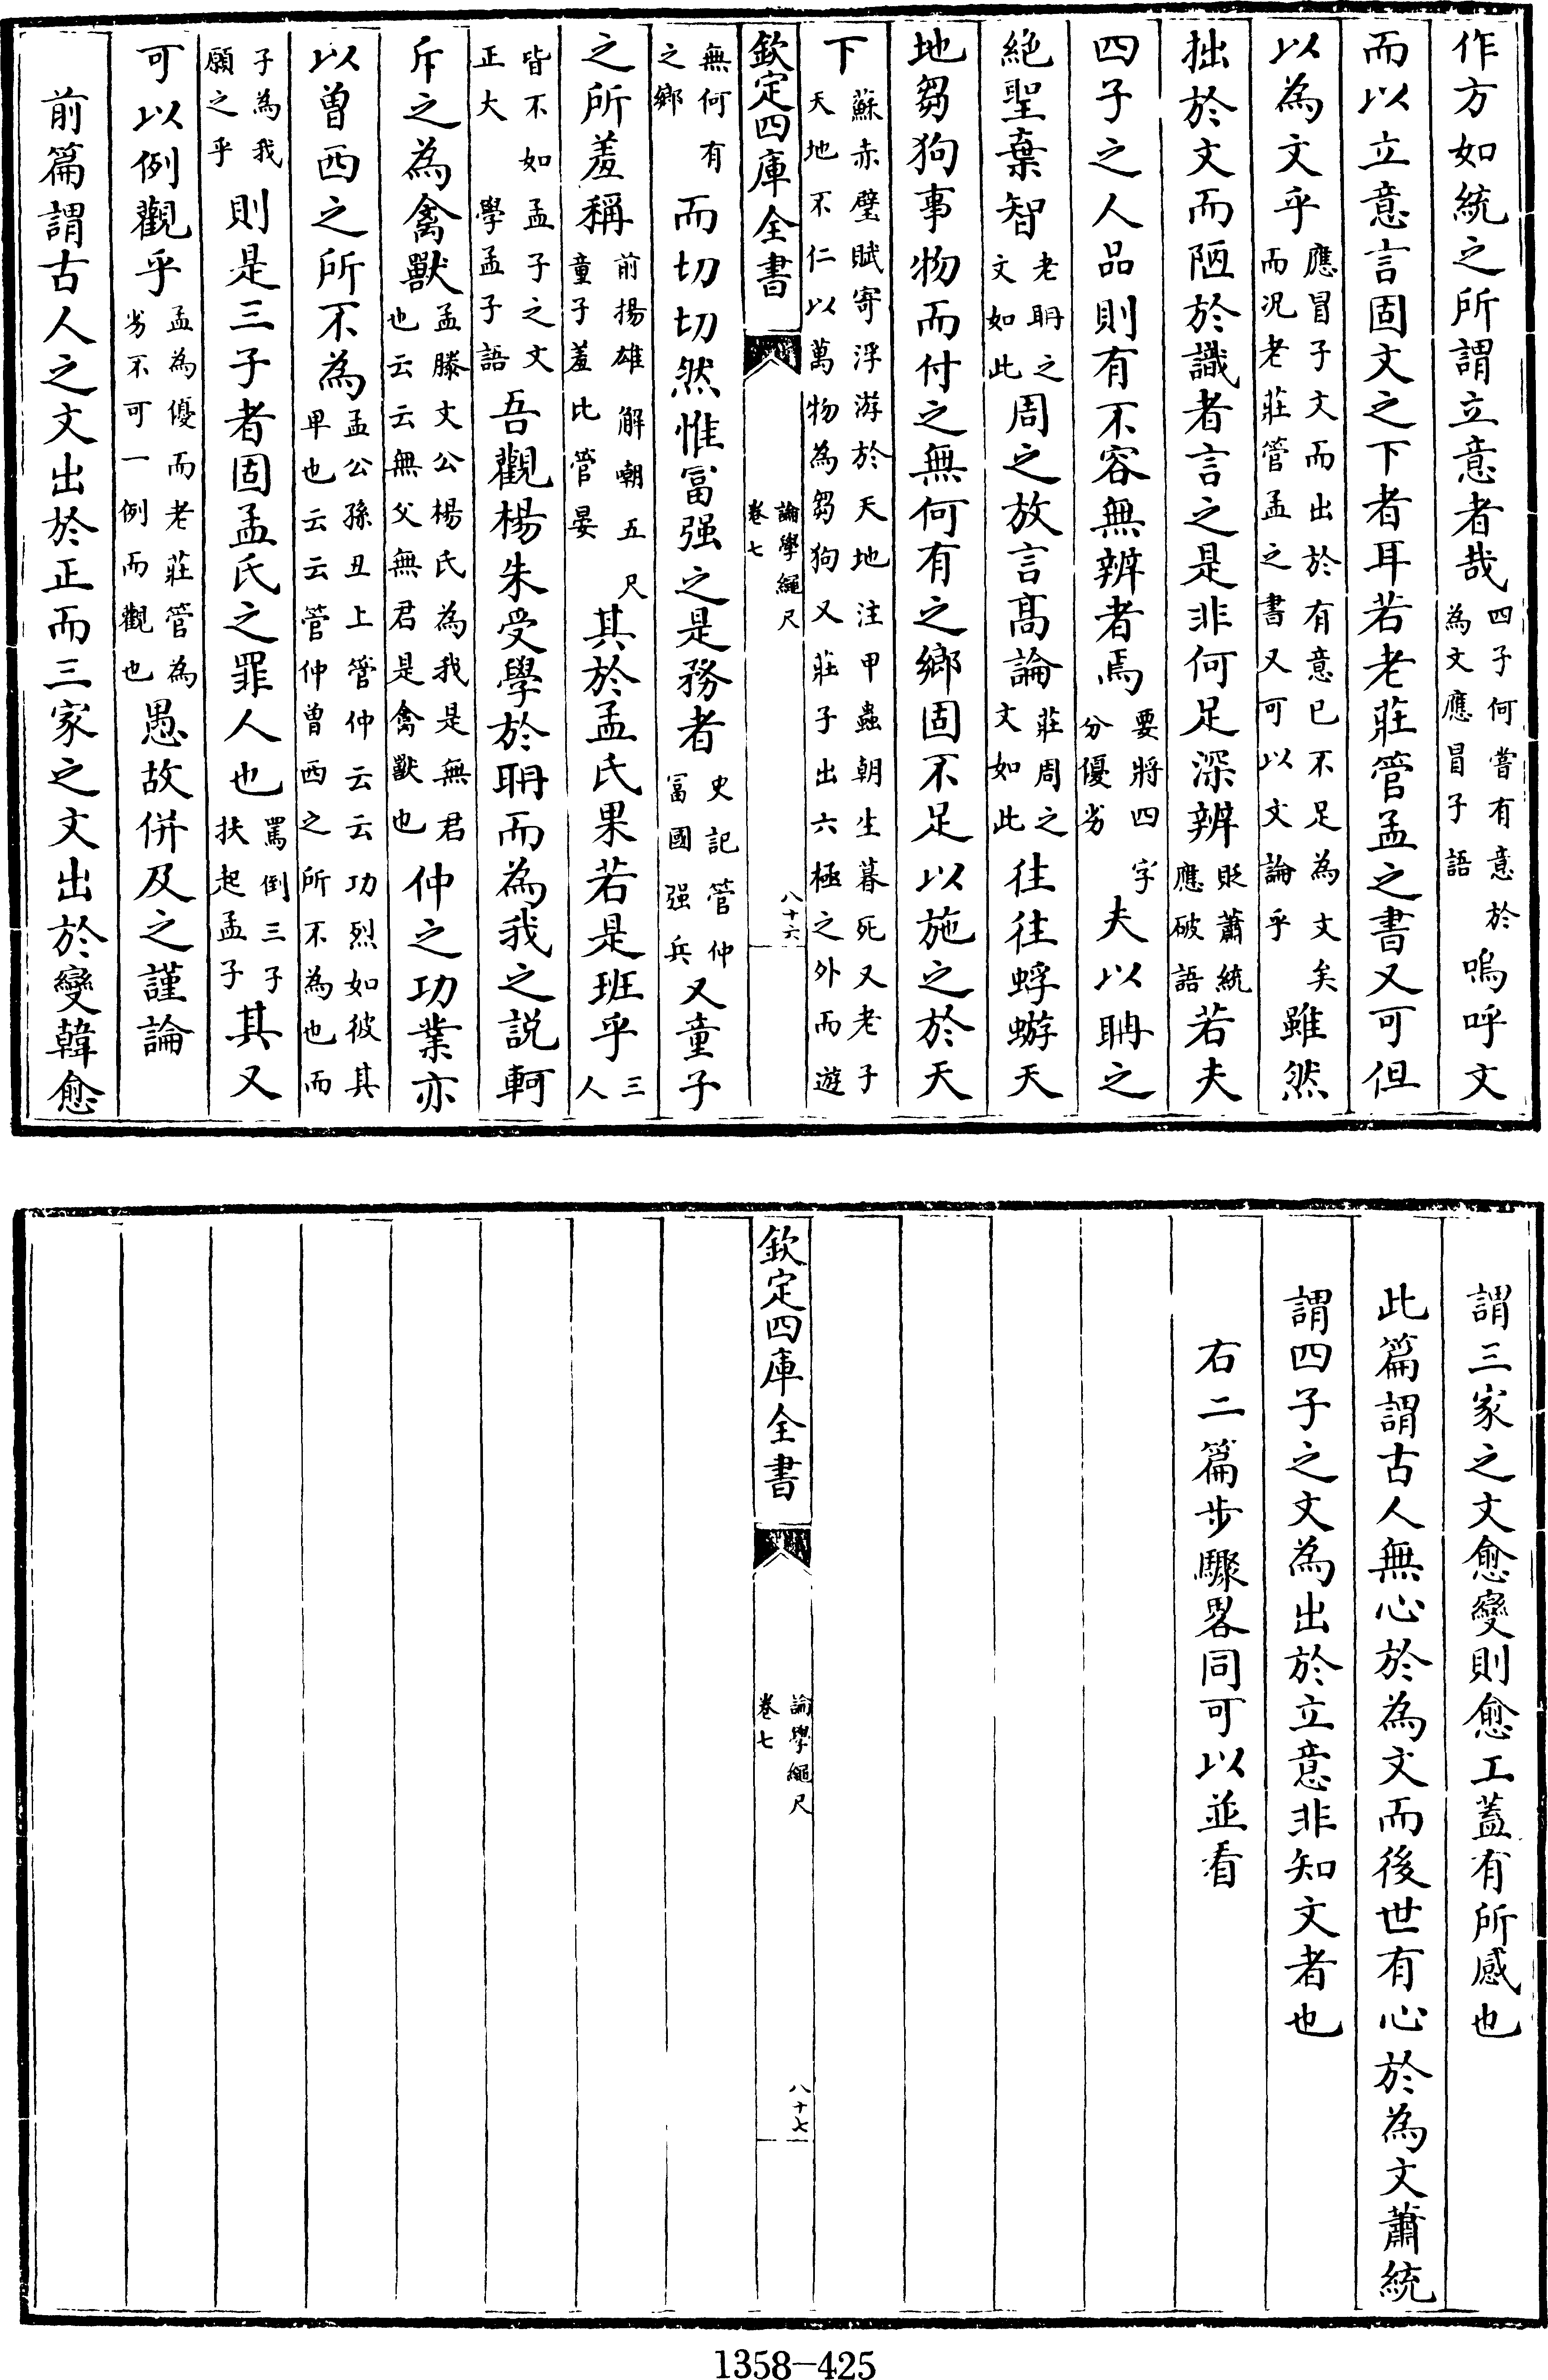 作方如統之所謂立意者哉四子何嘗有意於為文應冒子語嗚呼文
而以立意言固文之下者耳若老莊管孟之書又可但
以為文乎應冒子文而出於有意已不足為文矣而况老莊管孟之書又可以文論乎雖然
拙於文而陋於識者言之是非何足深辨貶蕭統應破語若夫
四子之人品則有不容無辨者焉要將四字分優劣也夫以聃之
絶聖棄智老聃之文如此周之放言髙論莊周之文如此往往蜉蝣天
地芻狗事物而付之無何有之鄉固不足以施之於天
下蘇赤壁賦寄浮游於天地注甲蟲朝生暮死又老子天地不仁以萬物為芻狗又莊子出六極之外而遊
欽定四庫全書 論學繩尺 卷七 八十六
無何有之鄉而切切然惟富强之是務者史記管仲富國强兵又童子
之所羞稱前揚雄解嘲五尺童子羞比管晏其於孟氏果若是班乎三人
皆不如孟子之文正大學孟子語吾觀楊朱受學於聃而為我之説軻
斥之為禽獸孟滕文公楊氏為我是無君也云云無父無君是禽獸也仲之功業亦
以曽西之所不為孟公孫丑上管仲云云功烈如彼其卑也云云管仲曽西之所不為也而
子為我願之乎則是三子者固孟氏之罪人也罵倒三子扶起孟子其又
可以例觀乎孟為優而老莊管為劣不可一例而觀也愚故併及之謹論
前篇謂古人之文出於正而三家之文出於變韓愈
謂三家之文愈變則愈工蓋有所感也
此篇謂古人無心於為文而後世有心於為文蕭統
謂四子之文為出於立意非知文者也
右二篇步驟畧同可以並看
欽定四庫全書 論學繩尺 卷七 八十七
1358-425